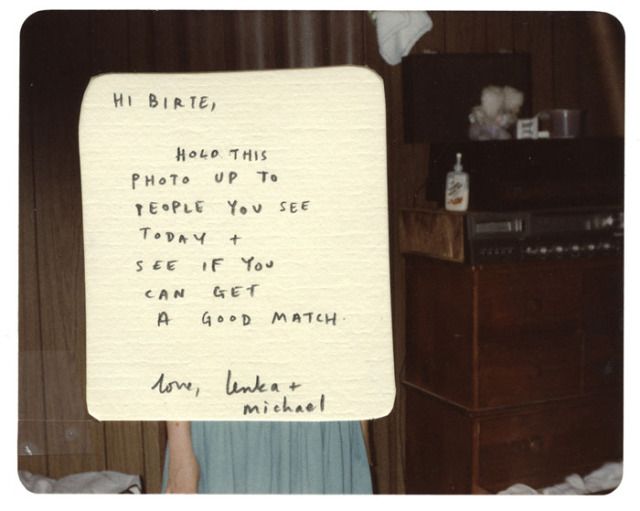 HI BIRTE,
HOLD THIS
PHOTO UP TO
PEOPLE YOU SEE
TODAY +
SEE IF YOU
CAN GET
A GOOD MATCH.
love, lenka +
michael